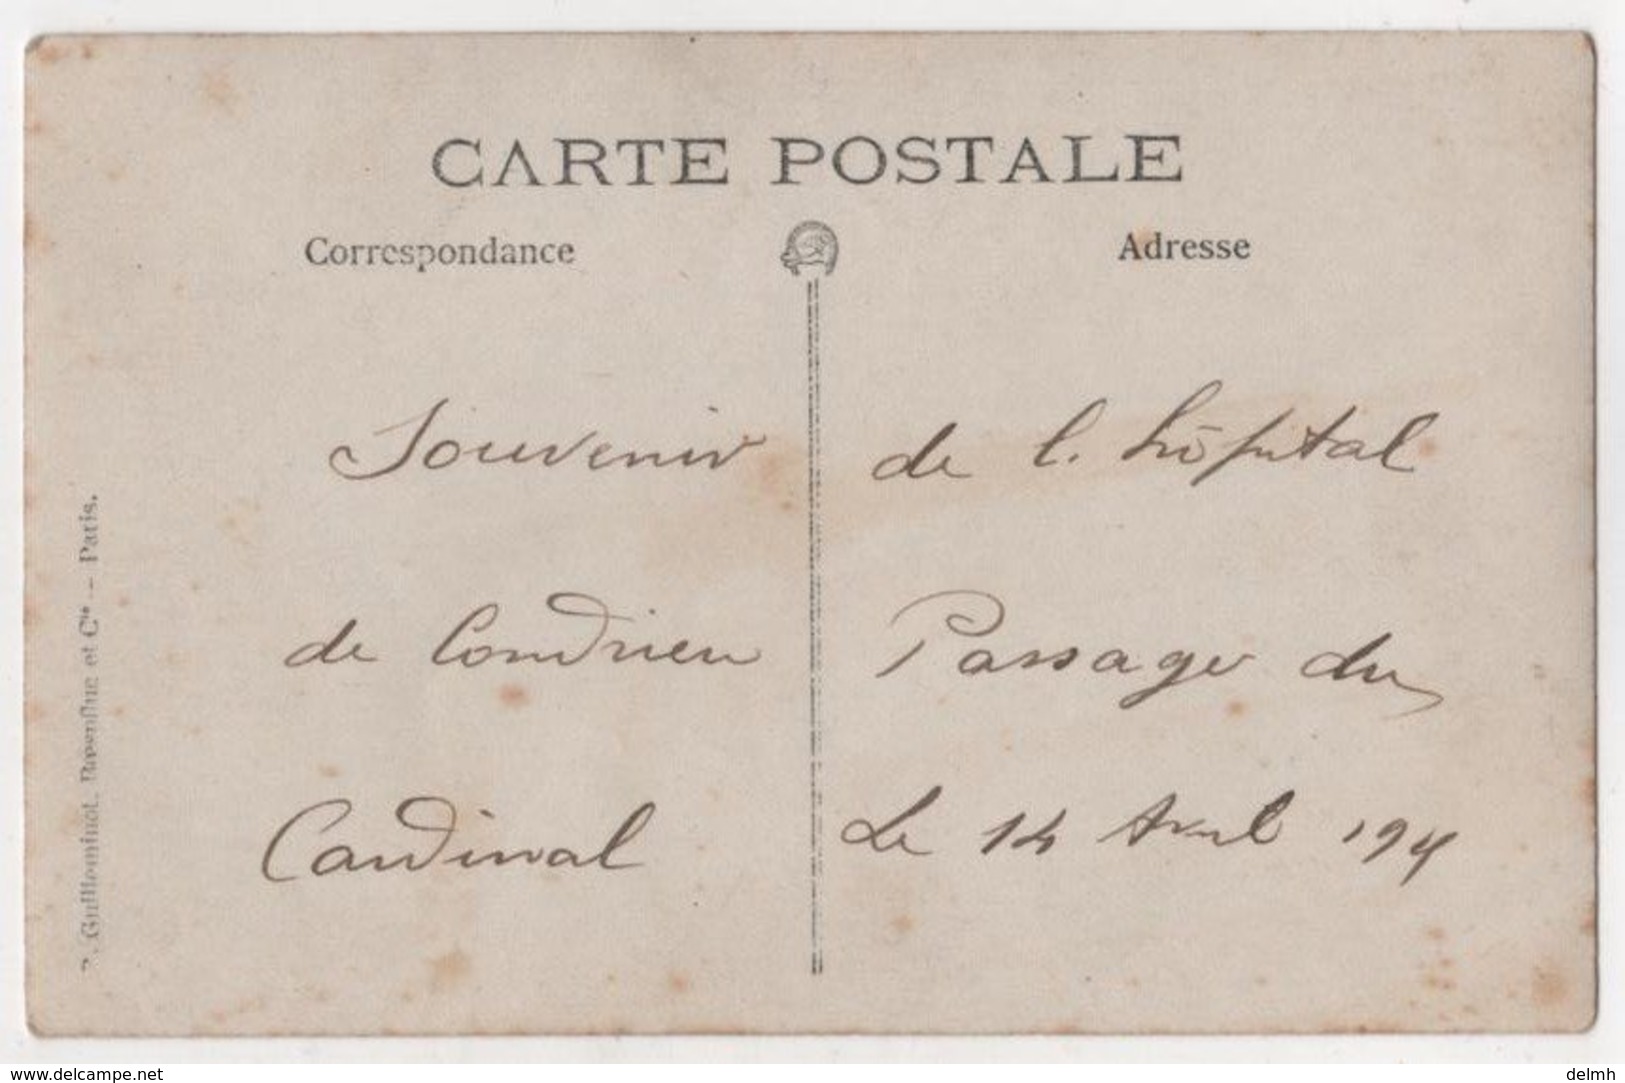 CARTE POSTALE
Correspondance Adresse
Souvenir de l'hôpital
de Condrieu Passage du
Cardinal Le 14 Avril
R. Guilleminot, Boespflug et Cie — Paris.
www.delcampe.net
delmh